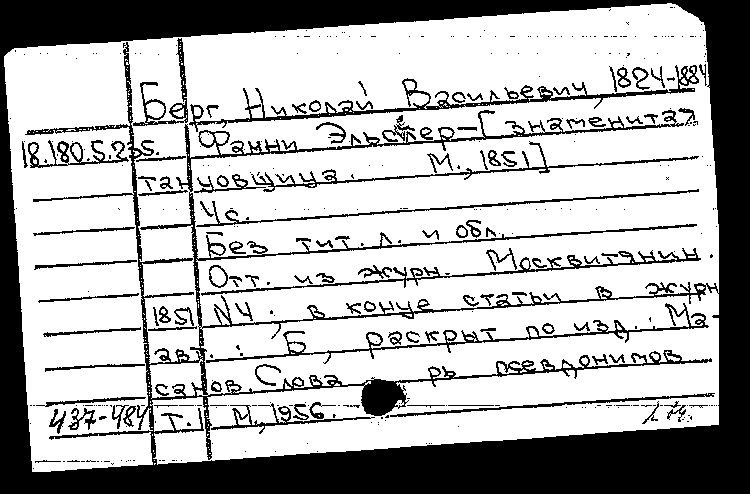 Берг, Николай Васильевич, 1824-1884
18.180.5.235. Фанни Эльслер - [знаменитая
танцовщица. М., 1851]
Чс.
Без тит. л. и обл.
Отт. из журн. Москвитянин.
1851 N4; в конце статьи в журн
авт.: Б, раскрыт по изд.: Ма-
санов. Слова рь псевдонимов
437-484 Т.1 М., 1956.